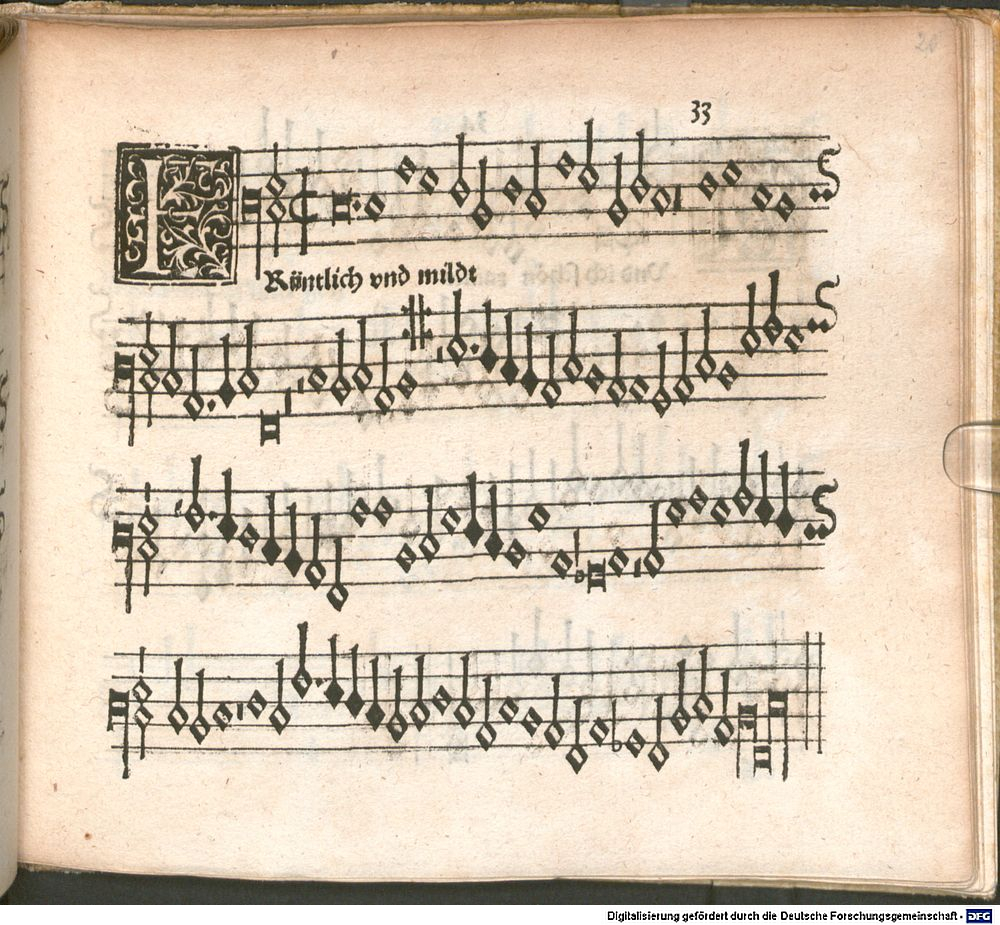 20
33
F
Rüntlich vnd mildt
Digitalisierung gefördert durch die Deutsche Forschungsgemeinschaft - DFG